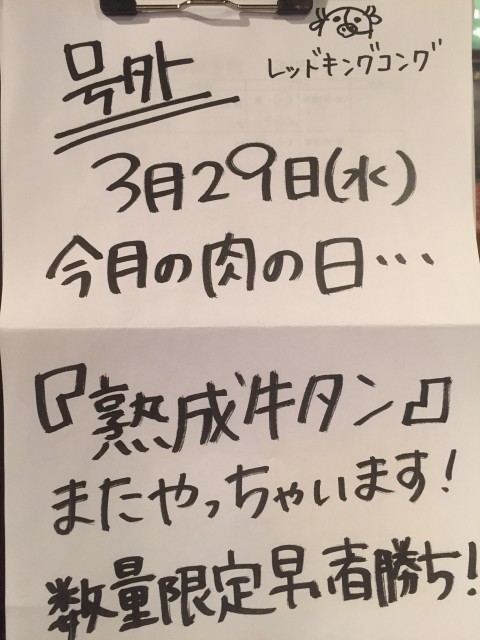 レッドキングコング
号外
3月29日(水)
今月の肉の日…
『熟成牛タン』
またやっちゃいます!
数量限定早者勝ち!